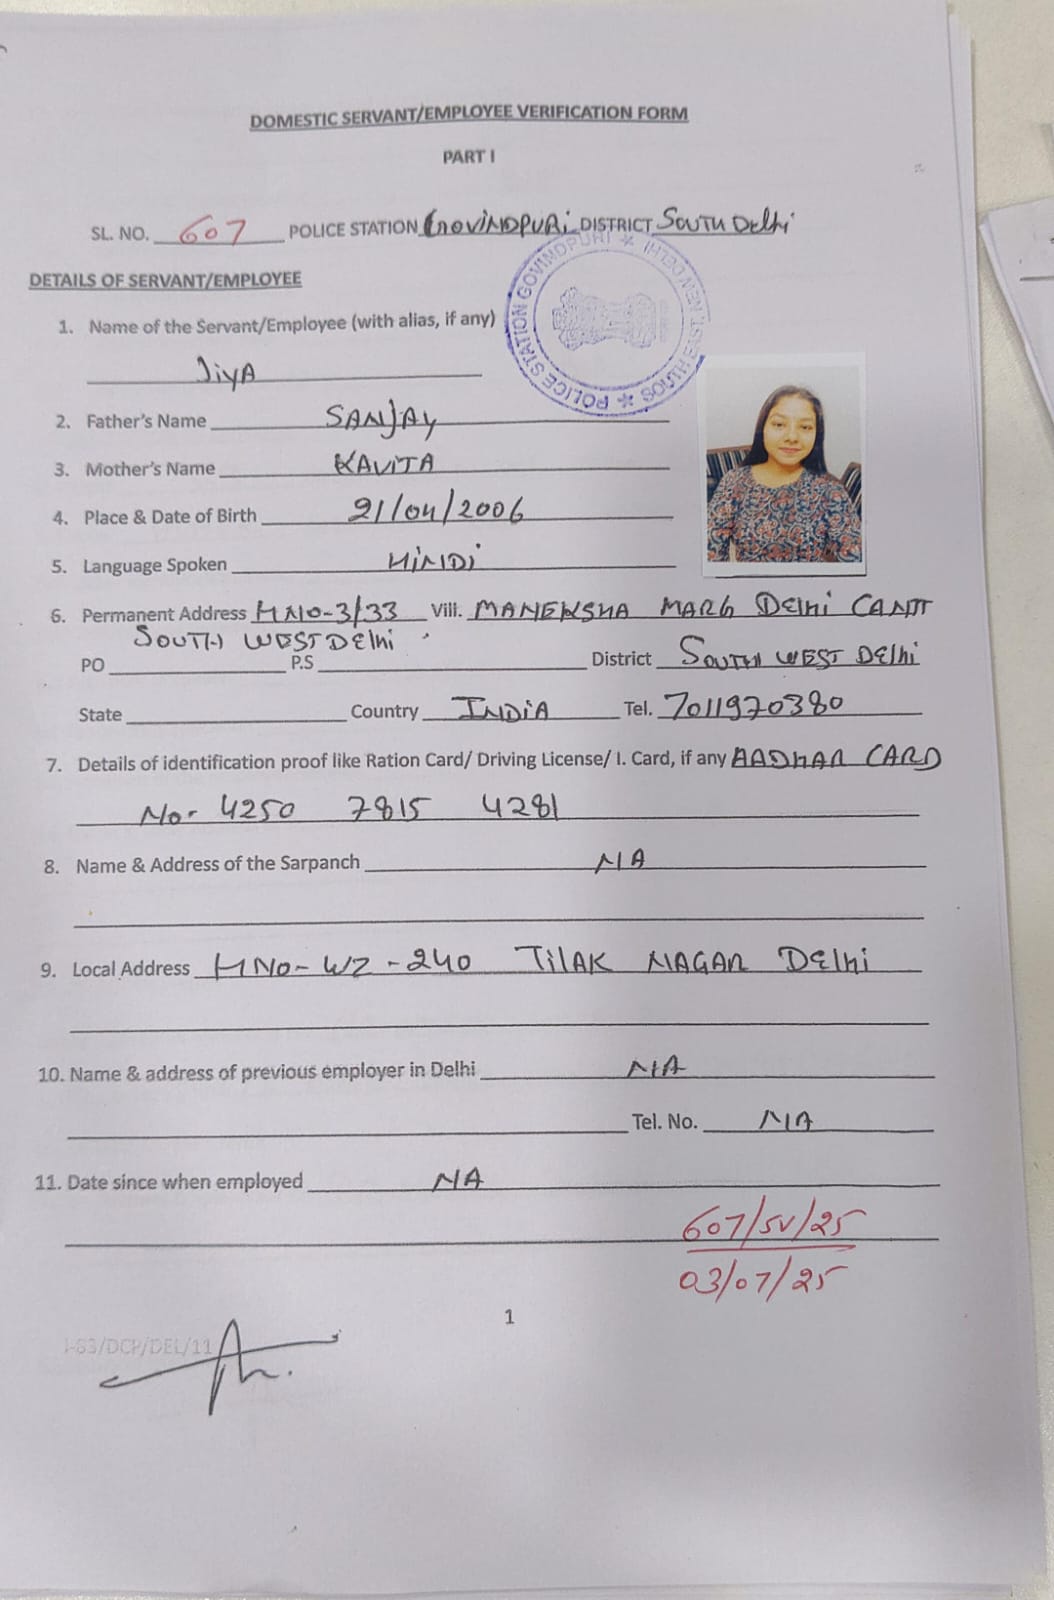 DOMESTIC SERVANT/EMPLOYEE VERIFICATION FORM
PART I
SL. NO. 607 POLICE STATION GOVINDPURI DISTRICT SOUTH DELHI
POLICE STATION GOVINDPURI * SOUTH EAST, NEW DELHI *
DETAILS OF SERVANT/EMPLOYEE
1. Name of the Servant/Employee (with alias, if any)
JIYA
2. Father's Name SANJAY
3. Mother's Name KAVITA
4. Place & Date of Birth 21/04/2006
5. Language Spoken HINDI
6. Permanent Address H NO-3/33 Vill. MANEKSHA MARG DELHI CANTT
SOUTH WEST DELHI
PO P.S District SOUTH WEST DELHI
State Country INDIA Tel. 7011970380
7. Details of identification proof like Ration Card/ Driving License/ I. Card, if any AADHAR CARD
No- 4250 7815 4281
8. Name & Address of the Sarpanch N/A
9. Local Address H NO-WZ-240 TILAK NAGAR DELHI
10. Name & address of previous employer in Delhi N/A
Tel. No. N/A
11. Date since when employed NA
607/SV/25
03/07/25
1
I-63/DCP/DEL/11